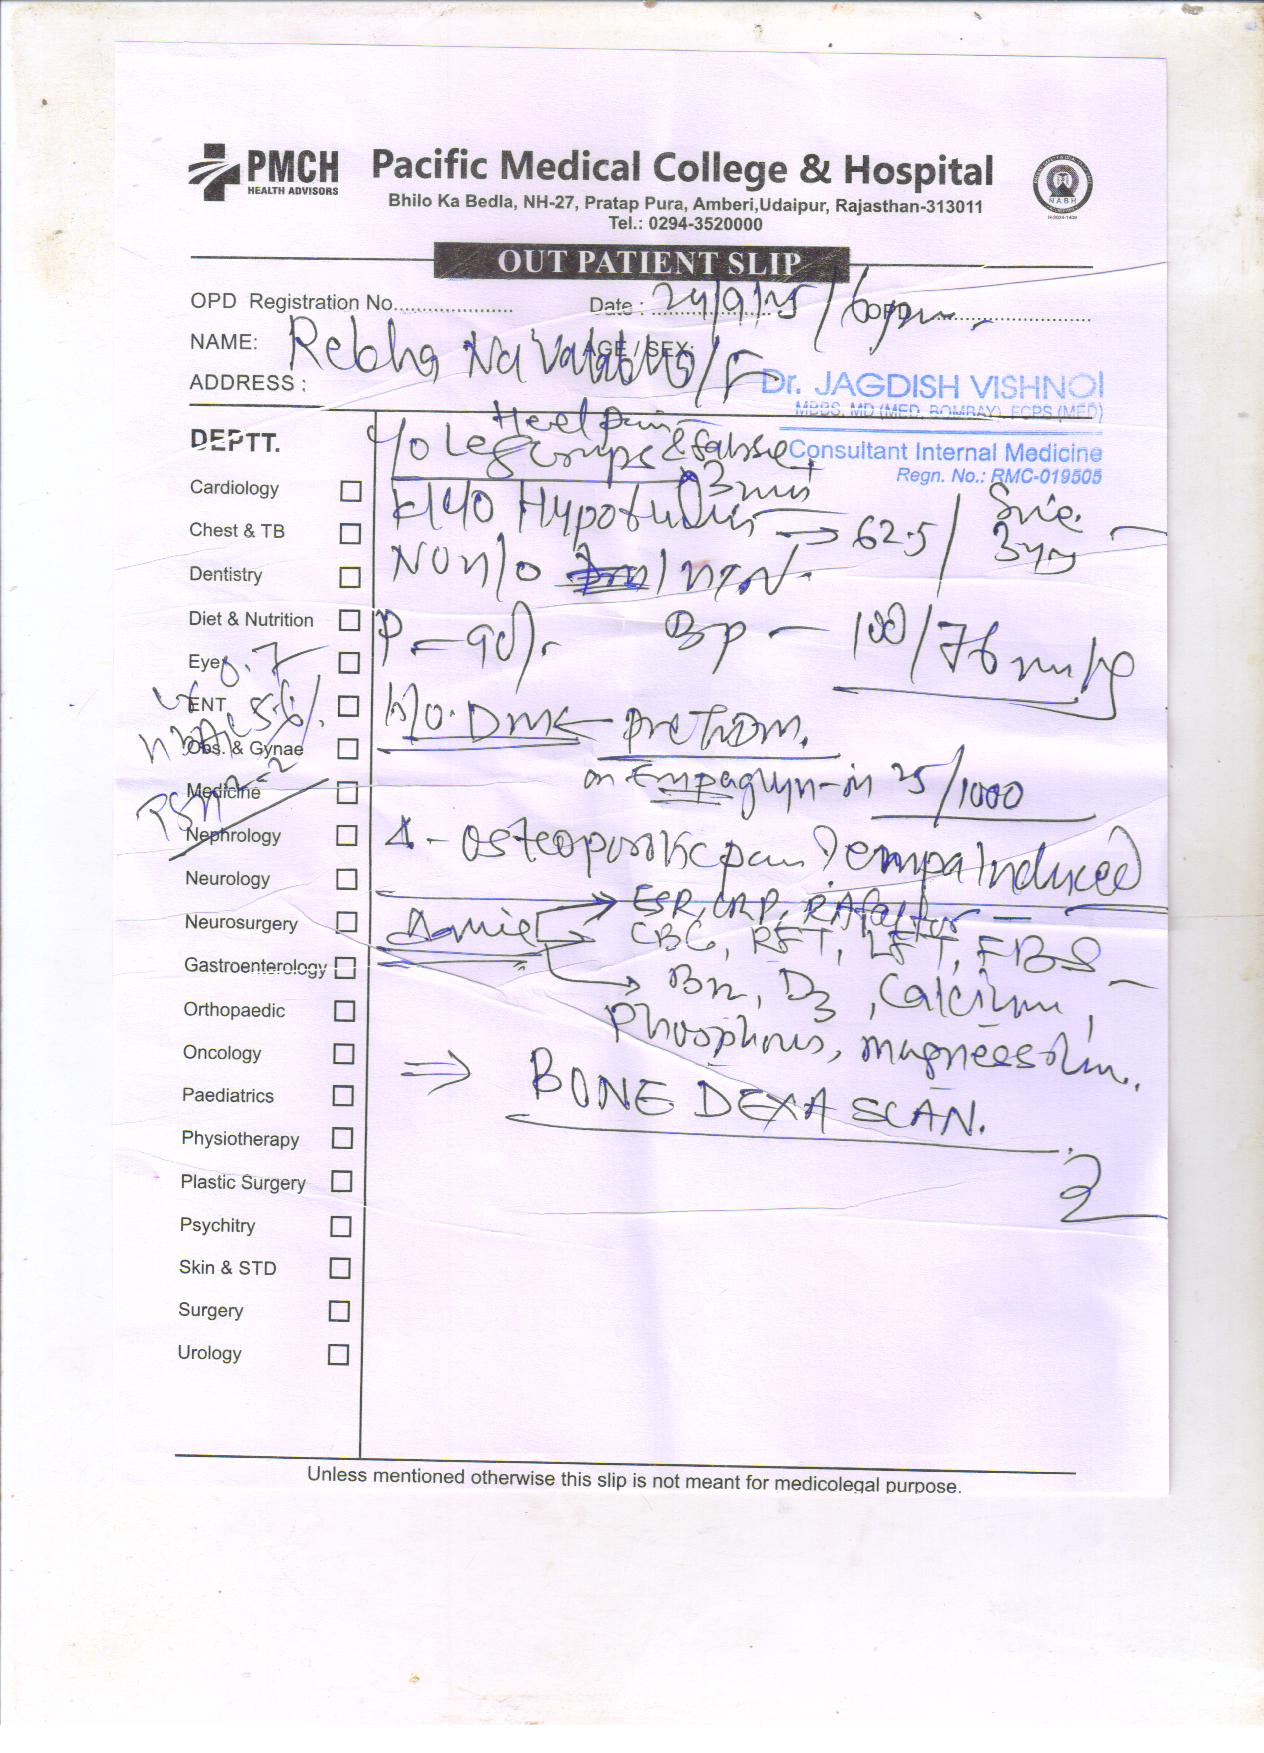 PMCH
HEALTH ADVISORS
Pacific Medical College & Hospital
Bhilo Ka Bedla, NH-27, Pratap Pura, Amberi,Udaipur, Rajasthan-313011
Tel.: 0294-3520000
NABH
OUT PATIENT SLIP
OPD Registration No.
Date : 24/9/25 / 60 OPD
NAME: Rekha AGE / SEX: / F
ADDRESS :
Dr. JAGDISH VISHNOI
MBBS, MD (MED, BOMBAY), FCPS (MED)
Consultant Internal Medicine
Regn. No.: RMC-019505
Heel Pain
c/o Leg &
3
K/C/O → 62.5 / Since 3
NO H/O / HTN.
P - 90/. BP - 100/76 mm/Hg
H/O. DM ←
on 25/1000
Δ - Osteoporotic pain ? empa Induced
ESR, CRP, RA factor
CBC, RFT, LFT, FBS
B12, D3, Calcium,
Phosphorus, magnessium.
⇒ BONE DEXA SCAN.
DEPTT.
Cardiology
Chest & TB
Dentistry
Diet & Nutrition
Eye
ENT
Obs. & Gynae
Medicine
Nephrology
Neurology
Neurosurgery
Gastroenterology
Orthopaedic
Oncology
Paediatrics
Physiotherapy
Plastic Surgery
Psychitry
Skin & STD
Surgery
Urology
Unless mentioned otherwise this slip is not meant for medicolegal purpose.